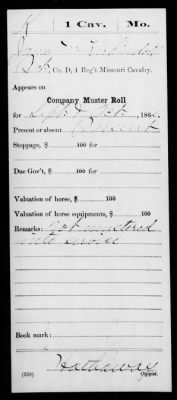 1 Cav. Mo.
Co. D, 1 Reg't Missouri Cavalry.
Appears on
Company Muster Roll
for Sept & Oct, 186
Present or absent
Stoppage, $ 100 for
Due Gov't, $ 100 for
Valuation of horse, $ 100
Valuation of horse equipments, $ 100
Remarks: Not mustered
into service
Book mark:
Hathaway
(358) Copyist.